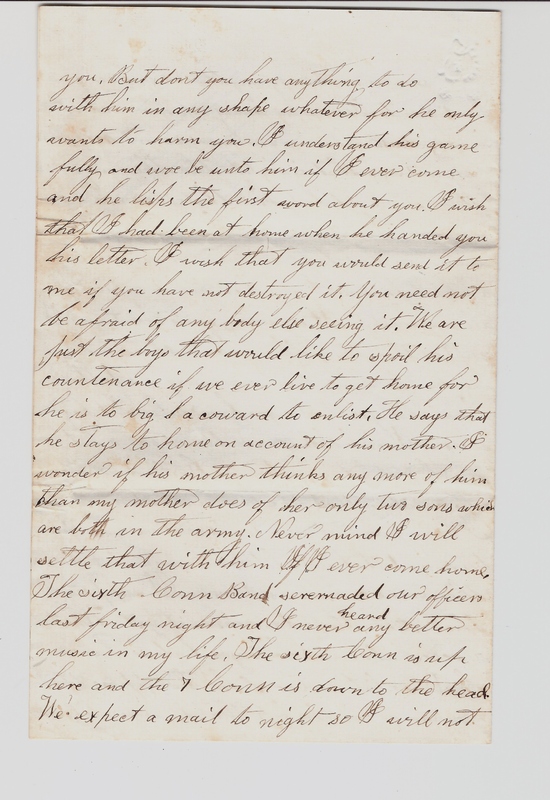 you. But dont you have anything to do
with him in any shape whatever for he only
wants to harm you. I understand his game
fully and woe be unto him if I ever come
and he lisps the first word about you. I wish
that I had been at home when he handed you
his letter. I wish that you would send it to
me if you have not destroyed it. You need not
be afraid of any body else seeing it. We are
just the boys that would like to spoil his
countenance if we ever live to get home for
he is to big a coward to enlist. He says that
he stays to home on account of his mother. I
wonder if his mother thinks any more of him
than my mother does of her only two sons which
are both in the army. Never mind I will
settle that with him if I ever come home.
The sixth Conn Band serernaded our officers
last friday night and I never heard any better
music in my life. The sixth Conn is up
here and the 7 Conn is down to the head.
We expect a mail to night so I will not